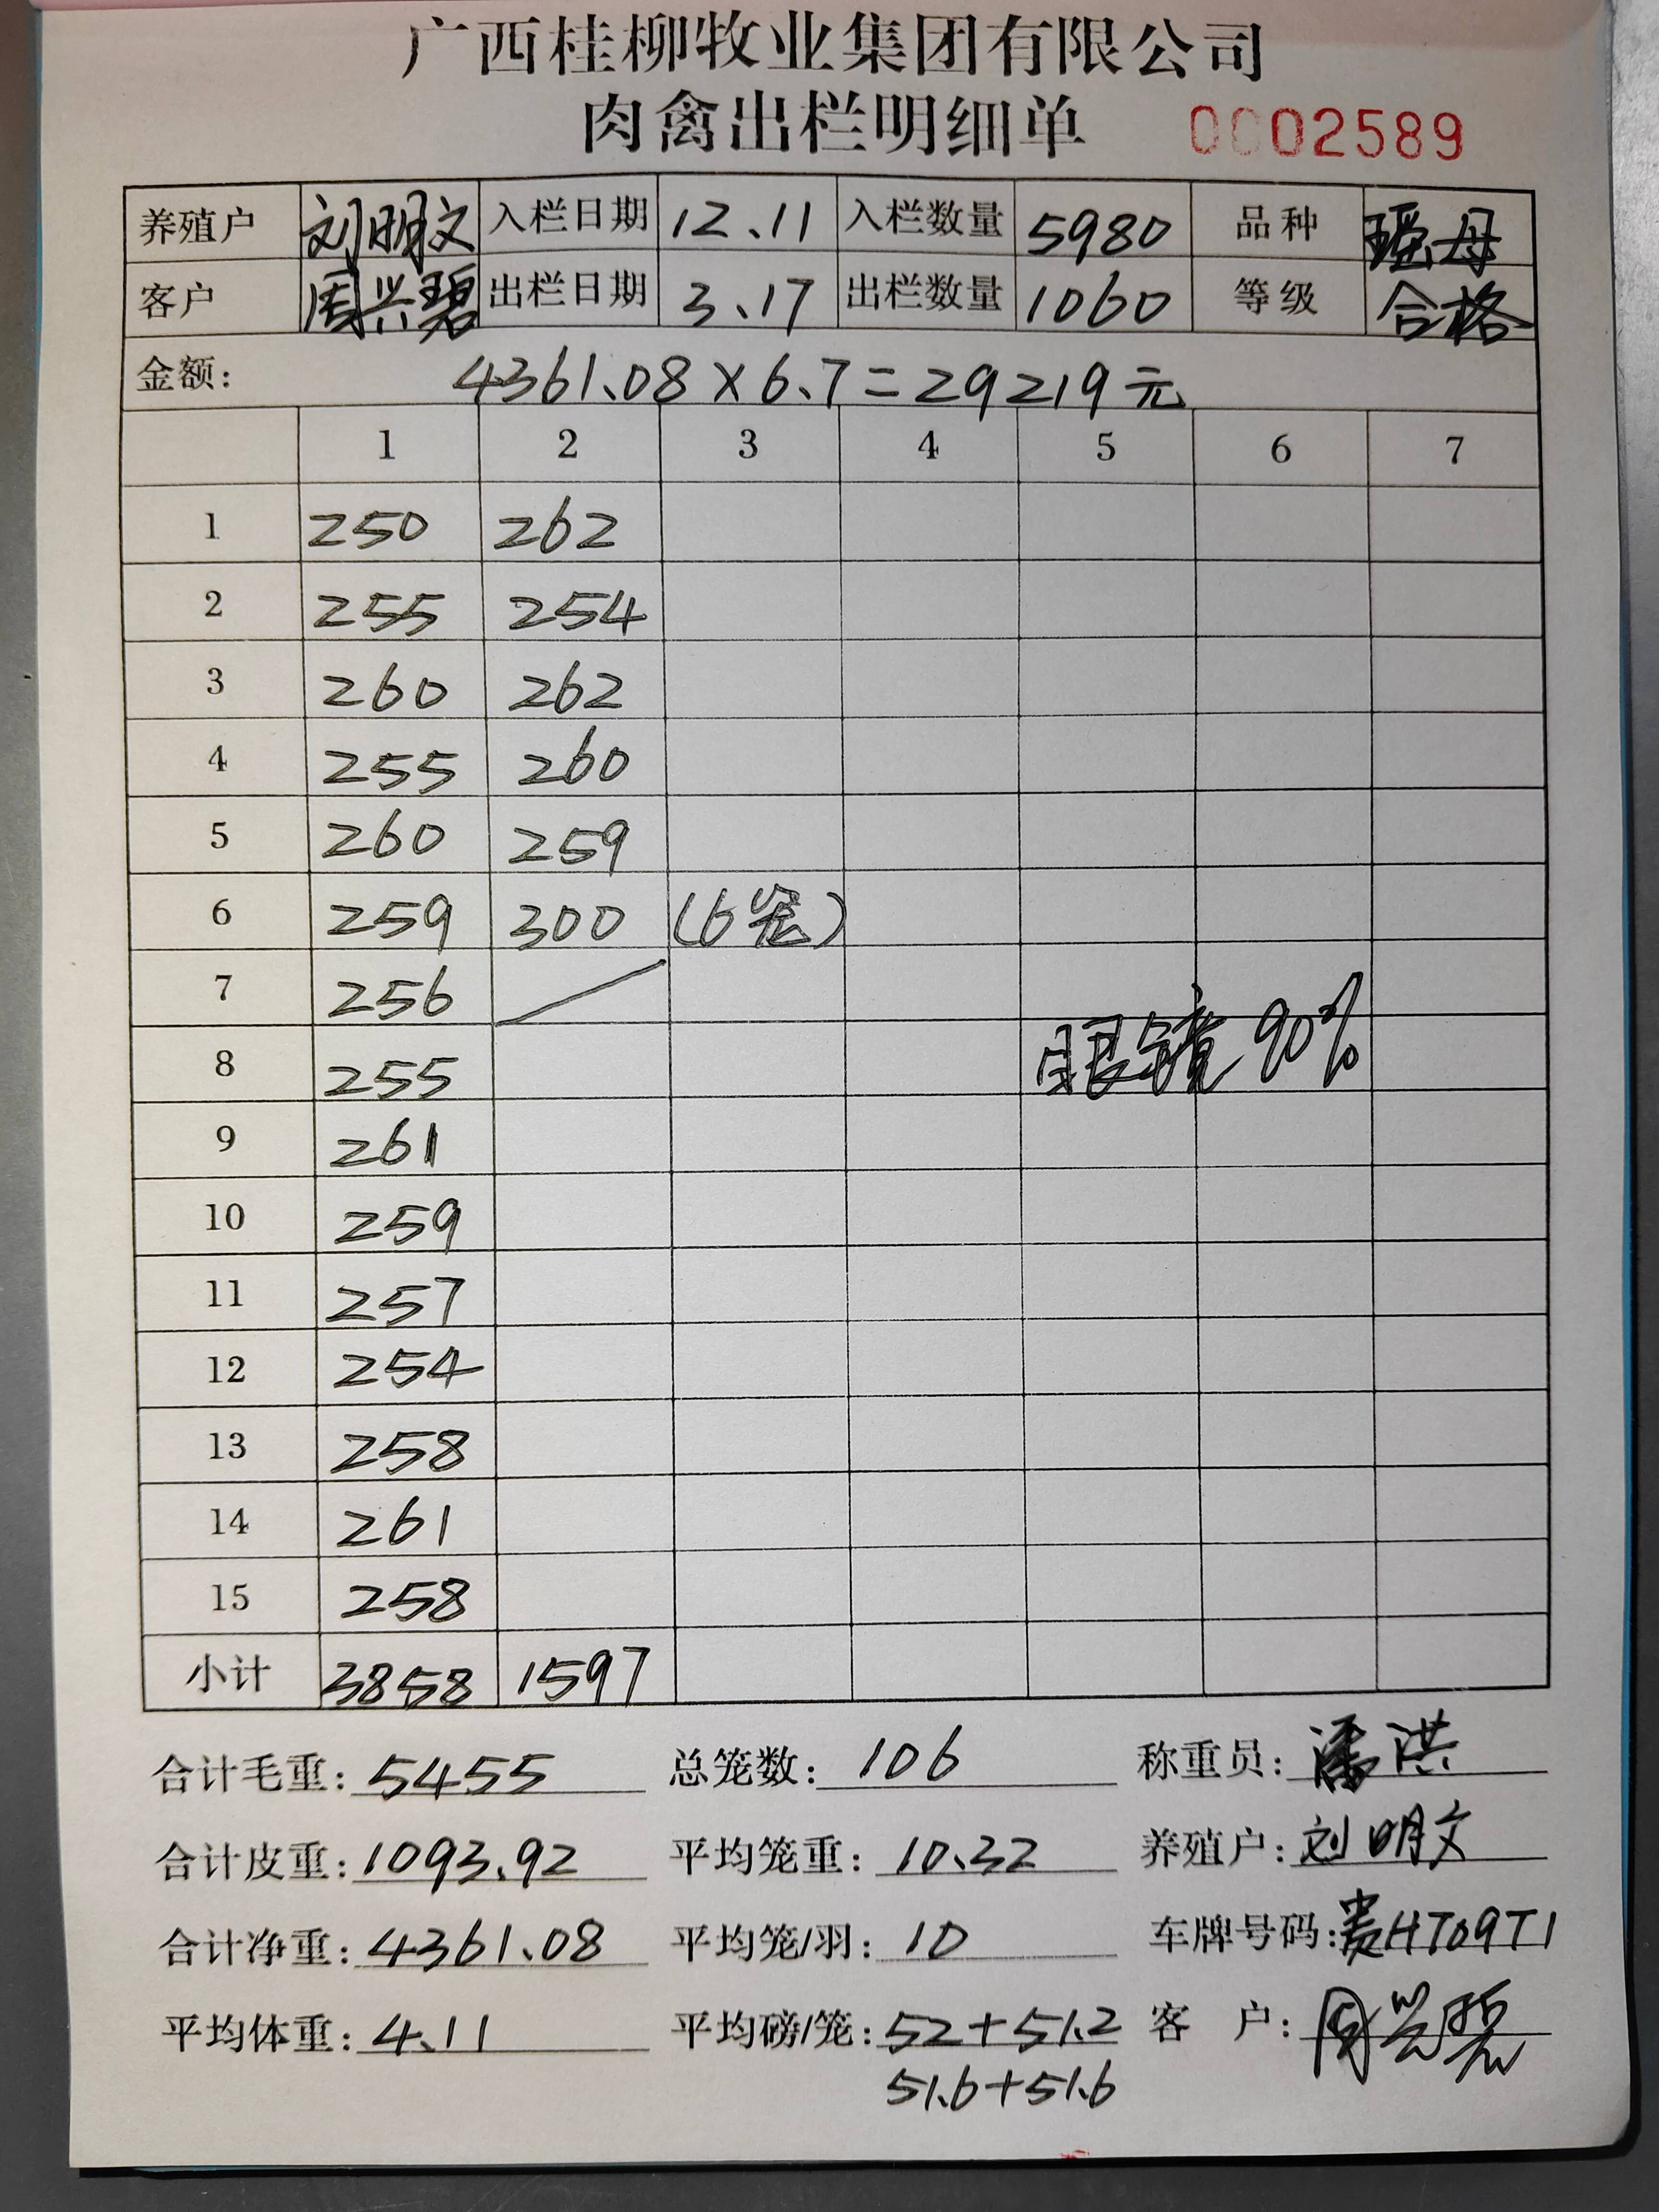 广西桂柳牧业集团有限公司
肉禽出栏明细单 0002589
养殖户 刘明文 入栏日期 12.11 入栏数量 5980 品种 瑶母
客户 周兴碧 出栏日期 3.17 出栏数量 1060 等级 合格
金额: 4361.08×6.7=29219元
1 2 3 4 5 6 7
1 250 262
2 255 254
3 260 262
4 255 260
5 260 259
6 259 300 (6笼)
7 256
眼镜90%
8 255
9 261
10 259
11 257
12 254
13 258
14 261
15 258
小计 3858 1597
合计毛重: 5455 总笼数: 106 称重员: 潘洪
合计皮重: 1093.92 平均笼重: 10.32 养殖户: 刘明文
合计净重: 4361.08 平均笼/羽: 10 车牌号码: 贵HT09T1
平均体重: 4.11 平均磅/笼: 52+51.2 客 户: 周兴碧
51.6+51.6